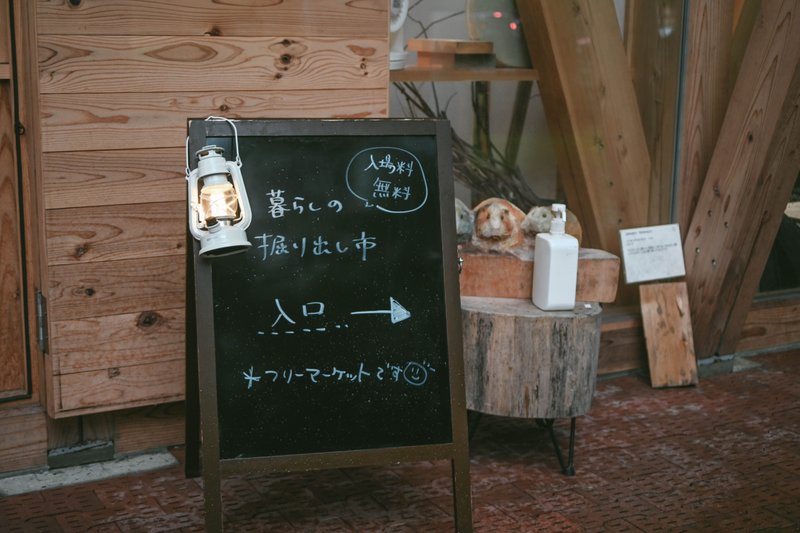 入場料
無料
暮らしの
掘り出し市
入口 →
*フリーマーケットです